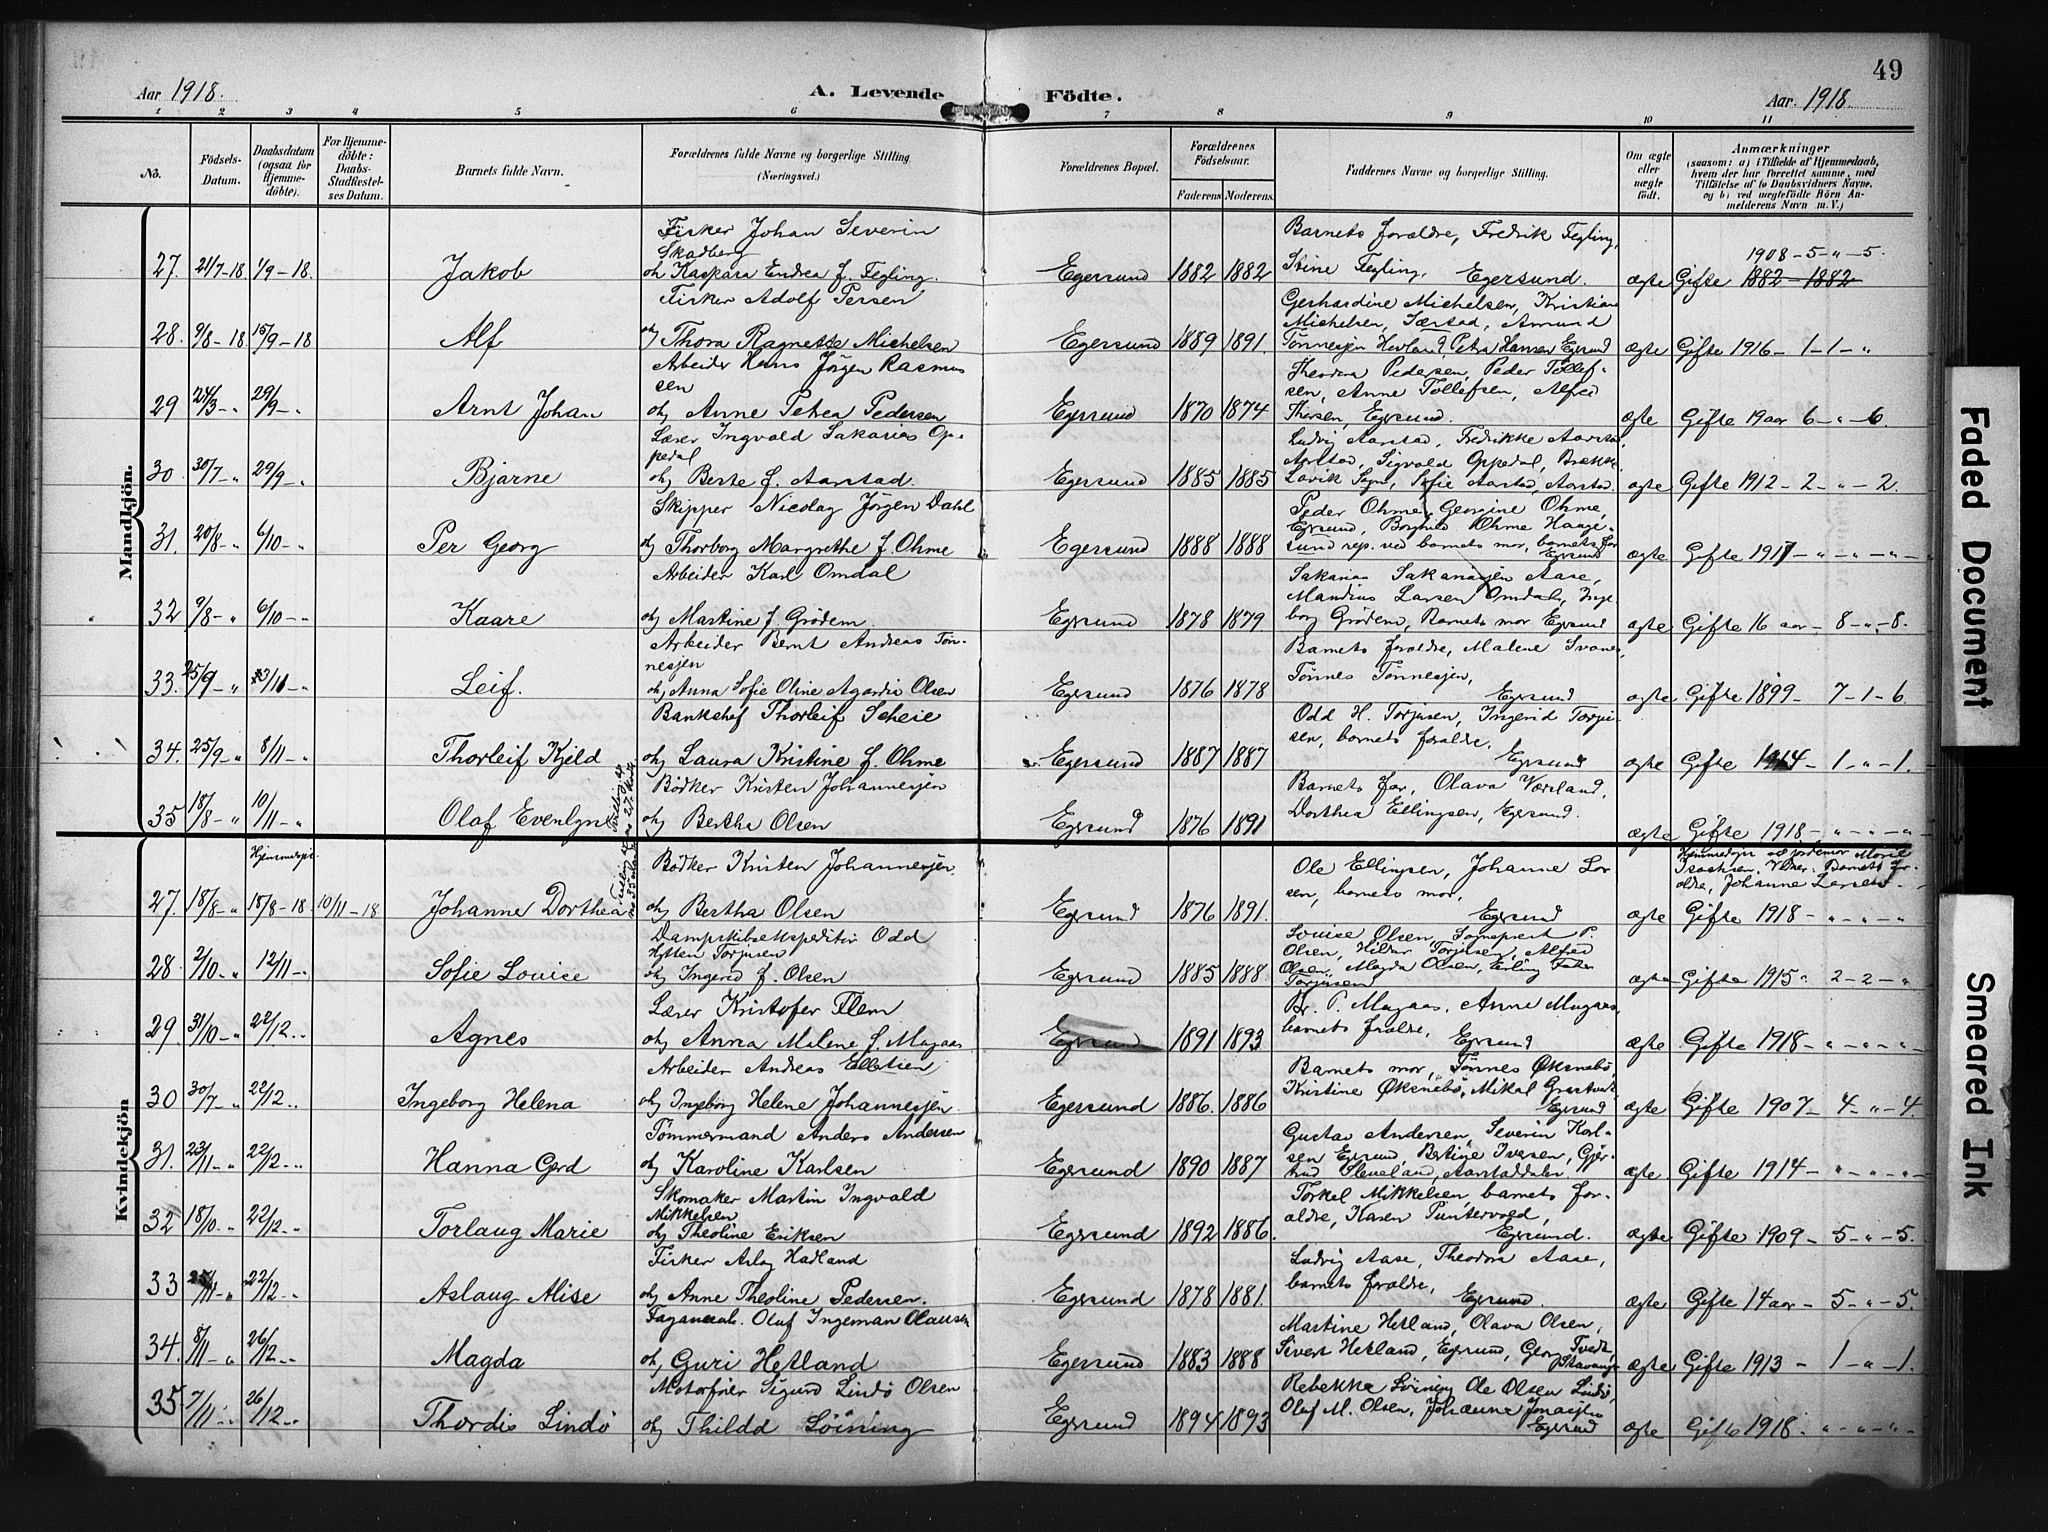 49
Aar 1918.
A. Levende Födte.
Aar 1918
1 2 3 4 5 6 7 8 9 10 11
No.
Födsels-Datum.
Daabsdatum (ogsaa for Hjemme-döbte).
For Hjemme-döbte: Daabs-Stadfæstel-ses Datum.
Barnets fulde Navn.
Forældrenes fulde Navne og borgerlige Stilling. (Næringsvei.)
Forældrenes Bopæl.
Forældrenes Födselsaar.
Faderens Moderens.
Faddernes Navne og borgerlige Stilling.
Om ægte eller uægte födt.
Anmærkninger
(saasom: a) i Tilfælde af Hjemmedaab, hvem der har forrettet samme, med Tilföielse af to Daabsvidners Navne, og b) ved uægtefödte Börn An-melderens Navn m. V.)
Mandkjön.
Fisker Johan Severin Skadberg
Barnets forældre, Fredrik Fegling,
1908 - 5 - " - 5.
27. 21/7-18. 1/9-18. Jakob og Kaspara Endrea f. Fegling. Egersund 1882 1882 Stine Fegling, Egersund. ægte Gifte 1882 - 1882
Fisker Adolf Persen
Gerhardine Michelsen, Kristian Michelsen, Amund
28. 9/8-18 15/9-18 Alf og Thora Ragnette Michelsen Egersund 1889 1891. Tønnesjen Hovland, Petra Hansen Egersund ægte Gifte 1916 - 1 - 1 - "
Arbeider Hans Jörgen Rasmussen
Theodora Pedersen, Peder Tollef-sen, Anne Tollefsen, Alfred
29 24/3-" 29/9-" Arnt Johan og Anne Petrea Pedersen Egersund 1870 1874 Egersund. ægte Gifte 19 aar 6 - " - 6.
Lærer Ingvald Sakarias Op-pedal
Ludvig Aarstad, Fredrikke Aarstad
Aarstad, Sigvald Oppedal, Brække,
30. 30/7 " 29/9-" Bjarne og Berte f. Aarstad. Egersund 1885 1885 Lavik Sogn, Sofie Aarstad, Aarstad. ægte Gifte 1912 - 2 - " - 2.
Skipper Nicolay Jörgen Dahl
Peder Ohme, Georgine Ohme,
Egersund, Borghild Ohme Hauge-
31. 20/8-" 6/10-" Per Georg og Thorborg Margrethe f. Ohme Egersund 1888 1888 sund rep. ved barnets mor, barnets far Egersund ægte Gifte 1917 - " - " - "
Arbeider Karl Omdal
Aase,
Mandius Larsen Omdal, Inge-
32 9/8-" 6/10-" Kaare og Martine f. Grödem. Egersund 1878 1879. borg Grödem, Barnets mor Egersund ægte Gifte 16 aar - 8 - " - 8.
Arbeider Bernt Andreas Tön-nesjen
Barnets forældre, Malene Svanes,
Tönnes Tönnesjen,
33. 25/9-" Leif. og Anna Sofie Oline Agardie Olsen Egersund 1876 1878 Egersund ægte Gifte 1899 - 7 - 1 - 6.
Bankchef Thorleif Scheie
Odd H. Torjusen, Ingerid Torju-sen, barnets foraldre.
34. 25/9-" 8/11-" Thorleif Kjeld og Laura Kristine f. Ohme Egersund 1887 1887 Egersund ægte Gifte 1914 - 1 - " - 1.
Bödker Kristen Johannesjen
Barnets far, Olava Værland,
35 18/8-" 10/11-" Olaf Evenlyn og Berthe Olsen Egersund 1876 1891 Dorthea Ellingsen, Egersund. ægte Gifte 1918 - " - " - "
Kvindekjön
Hjemmedøpt.
Bödker Kristen Johannesjen
Ole Ellingsen, Johanne Lar-sen, barnets mor,
Hjemmedøpt av Jordemor Marie Isachsen. Vidner. Barnets for-ældre, Johanne Larsen.
27. 18/8-" 18/8-18 10/11-18 Johanne Dorthea og Bertha Olsen Egersund 1876 1891. Egersund ægte Gifte 1918 - " - " - "
Dampskibsekspeditör Odd Hytten Torjusen
Louise Olsen, Sogneprest P. Olsen, Hildur Torjusen, Alfred Olsen, Magda Olsen, Erling
28. 2/10-" 12/11-" Sofie Louise og Ingerid f. Olsen Egersund 1885 1888. Torjusen ægte Gifte 1915 " 2 - 2 - "
Lærer Kristofer Flem
Br. P. Mugaas, Anne Mugaas,
29. 31/10-" 22/12-" Agnes og Anna Malene f. Mugaas Egersund 1891 1893 barnets foraldre, Egersund ægte Gifte 1918 - " - " - "
Arbeider Andreas
Barnets mor, Tønnes Øksnebö,
30 30/7-" 22/12-" Ingeborg Helena og Ingeborg Helene Johannesjen. Egersund 1886. 1886 Kristine Øksnebö, Mikal Egersund ægte Gifte 1907 - 4 - " - 4
Tömmermand Anders Andersen
Gustav Andersen, Severin Karl-sen Egersund, Bertine Iversen,
31. 23/11-" 22/12-" Hanna Gerd og Karoline Karlsen Egersund 1890 1887 Aarstaddalen. ægte Gifte 1914 - " - " - "
Skomaker Martin Ingvald Mikkelsen
Torkel Mikkelsen, barnets for-
32 18/10-" 22/12-" Torlaug Marie og Theoline Eriksen Egersund 1892 1886. aldre, Karen Puntervold, Egersund. ægte Gifte 1909 - 5 - " - 5.
Fisker Aslag Hadland
Ludvig Aase, Theodora Aase,
33 22/12-" Aslaug Alise og Anne Theoline Pedersen. Egersund 1878 1881. barnets foraldre, Egersund ægte Gifte 14 aar - 5 - " - 5.
Fayancearb. Oluf Ingeman Olausen
Martine Hetland, Olava Olsen,
34. 8/11-" 26/12-" Magda og Guri Hetland Egersund 1883 1888 Sivert Hetland, Egersund, Georg Tvedt, Stavanger ægte Gifte 1913 - 1 - " - 1.
Motorförer Sigurd Lindö Olsen
Rebekka Löining Ole Olsen Lindö,
35. 7/11-" 26/12-" Thordis Lindö og Thilda Löining Egersund 1894 1893 Olaf M. Olsen, Johanne Egersund ægte Gifte 1918. " - " - "
Faded Document
Smeared Ink